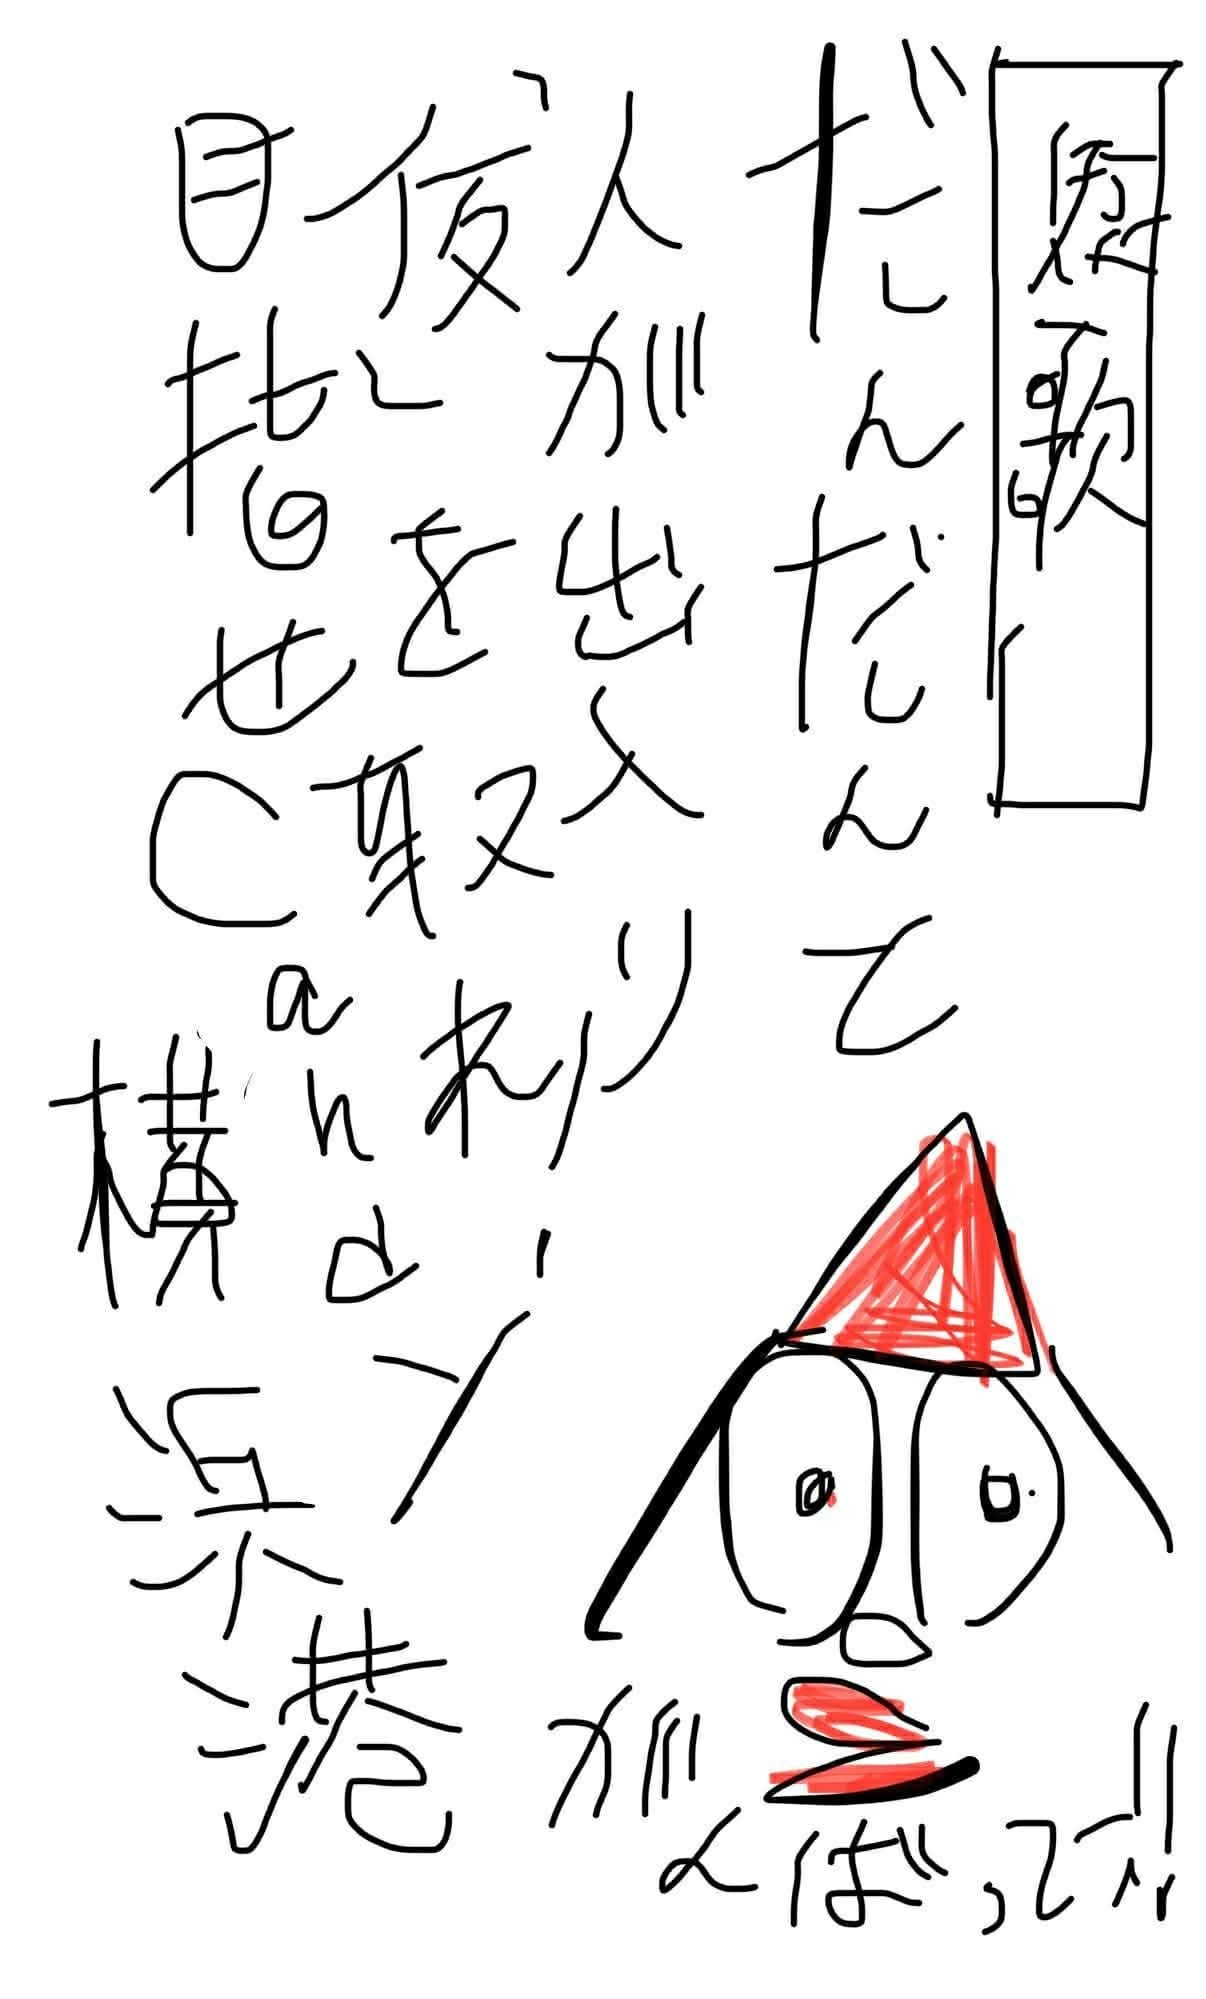 歌
だんだんて
人が出入り
仮とを取れ!
目指せCandy
横浜港
がんばって!!